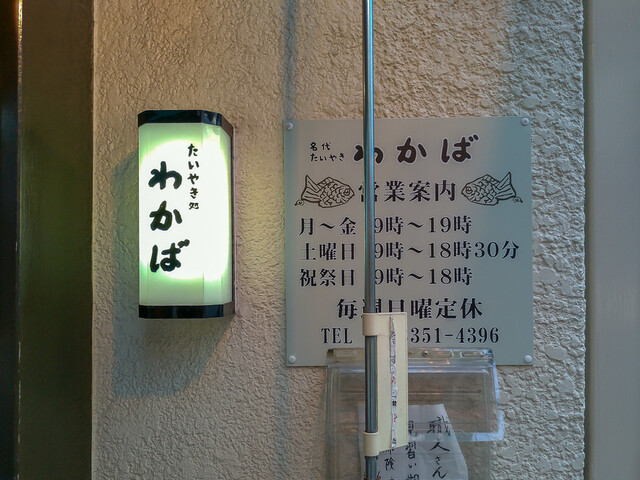 たいやき処
わかば
名代
たいやき
わかば
営業案内
月〜金 9時〜19時
土曜日 9時〜18時30分
祝祭日 9時〜18時
毎週日曜定休
TEL 351-4396
職人さん
見習い